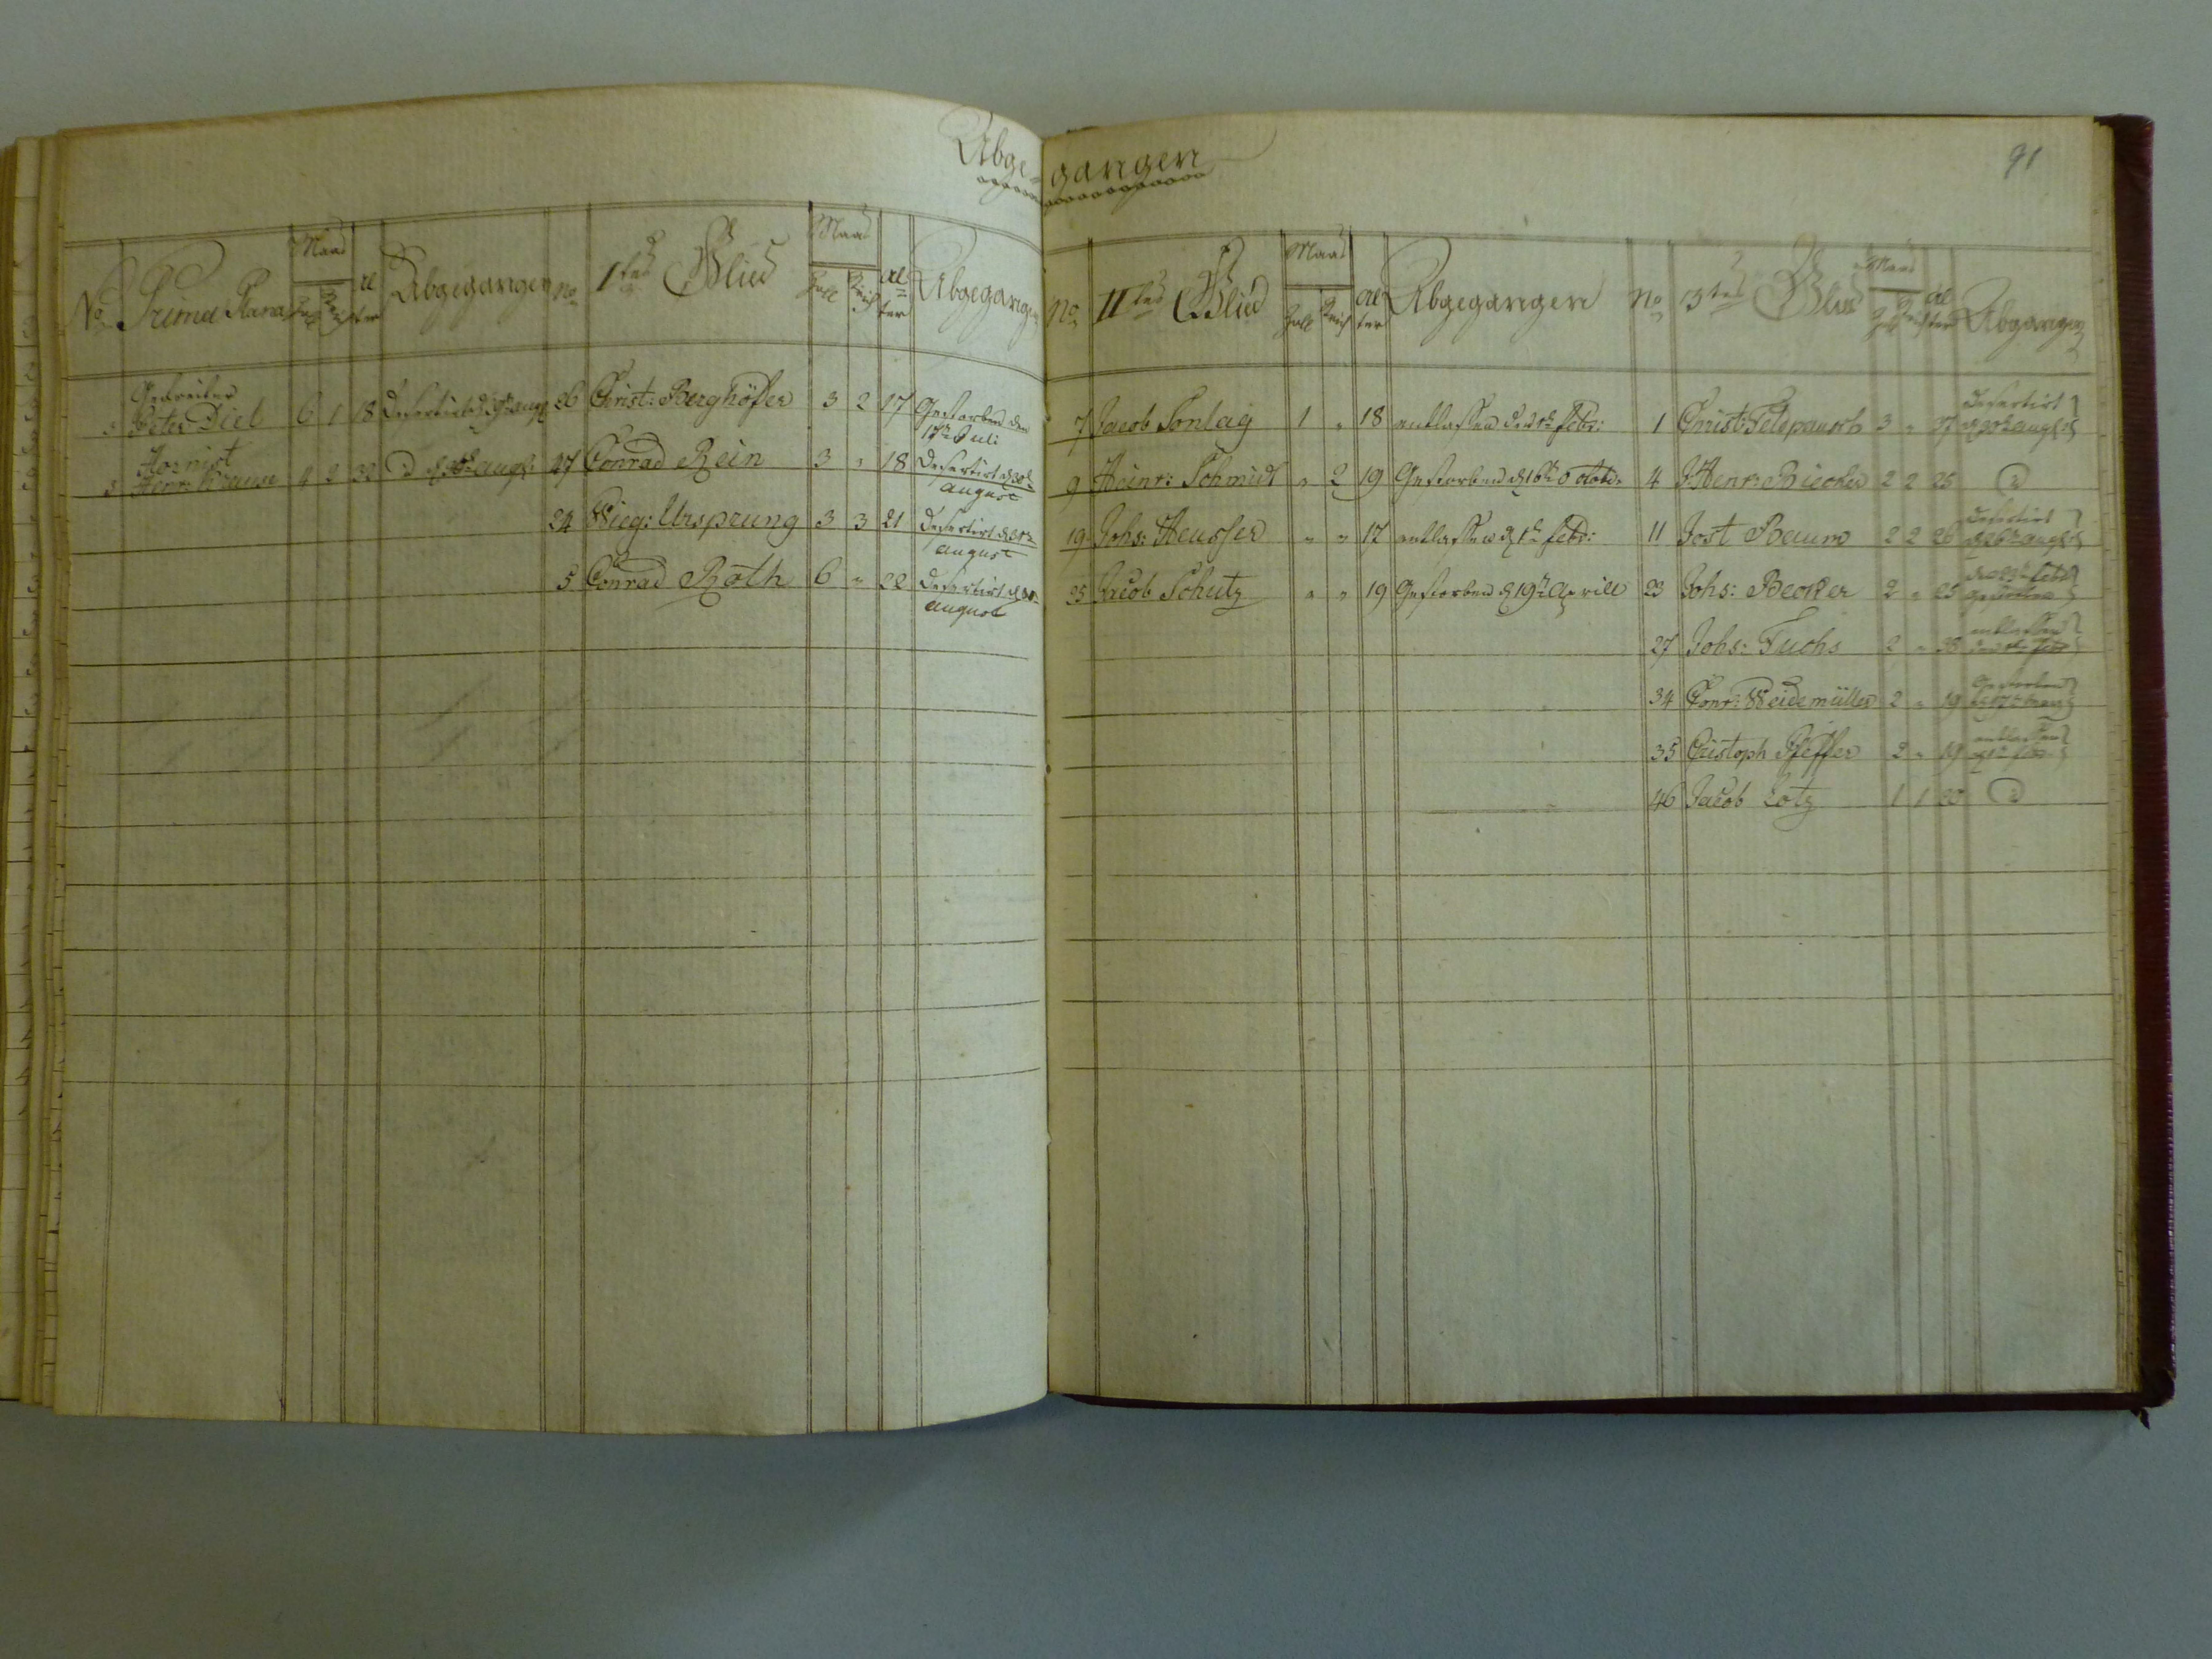 Abge-gangen
91
No Prima Plana Maas Zoll Strich Alter Abgegangen
Gefreiter
3 Peter Diel 6 1 18 Desertirt d
Hornist
3 Henr: Krause 4 2 32 d augst
No 1tes Glied Maas Zoll Strich Alter Abgegangen
26 Christ: Berghöfer 3 2 17 Gestorben den
17t Juli
27 Conrad Rein 3 " 18 Desertirt d
august
24 Wieg: Ursprung 3 3 21 Desertirt d
august
5 Conrad Roth 6 " 22 Desertirt d
august
No IItes Glied Maas Zoll Strich Alter Abgegangen
7 Jacob Sontag 1 " 18 entlassen den 1t Febr:
9 Heinr: Schmidt " 2 19 Gestorben d 16t Octobr
19 Johs: Heusser " " 17 entlassen d 1t Febr:
25 Jacob Schutz " " 19 Gestorben d 19t Aprill
No 3tes Glied Maas Zoll Strich Alter Abgangen
1 Christ: 3 " 27 Desertirt
augst
4 J Henr: Biecker 2 2 25 d
11 Jost Baum 2 2 26 Desertirt
d 26t augst
23 Johs: Becker 2 " 25
27 Johs: Fuchs 2 " 38 entlassen
34 Conr: Weidemüller 2 " 19 Gestorben
35 Christoph Pfeffer 2 " 19 entlassen
d 1t febr
46 Jacob Lotz 1 1 20 d